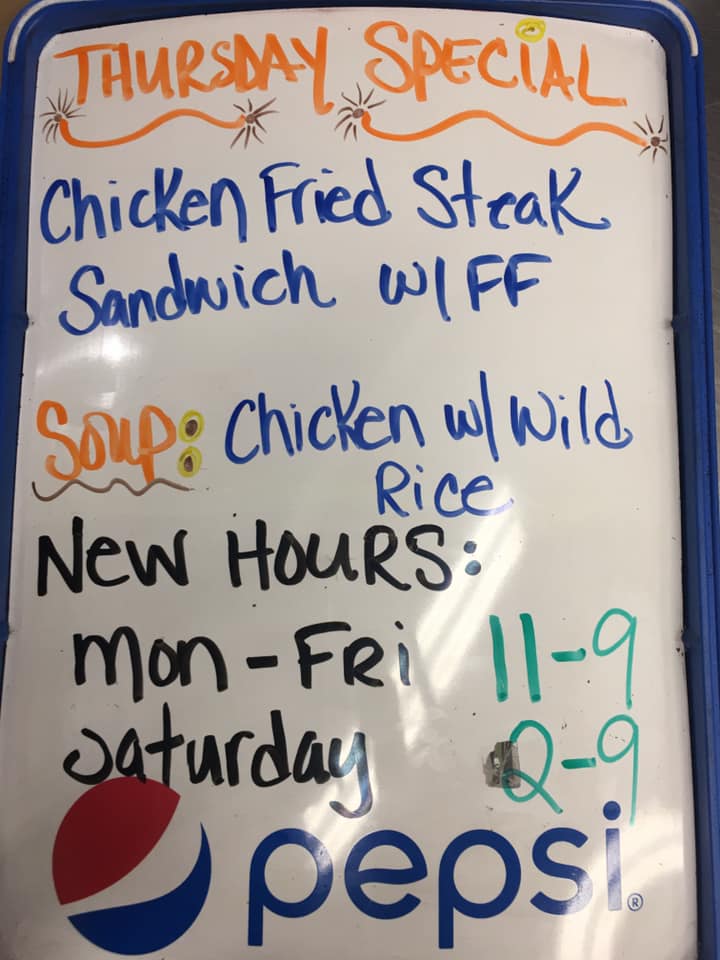 THURSDAY SPECIAL
Chicken Fried Steak
Sandwich w/ FF
Soup: Chicken w/ Wild
Rice
New HOURS:
Mon-FRi 11-9
Saturday 2-9
pepsi®